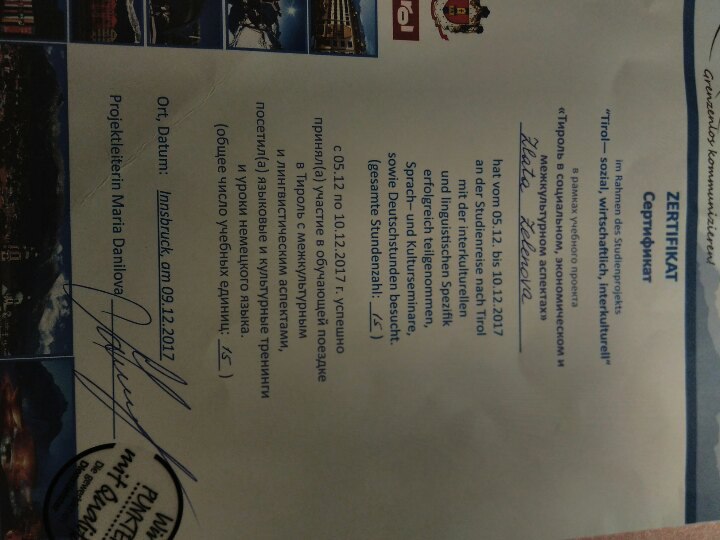 Grenzenlos kommunizieren!
ZERTIFIKAT
Сертификат
im Rahmen des Studienprojekts
"Tirol— sozial, wirtschaftlich, interkulturell"
в рамках учебного проекта
«Тироль в социальном, экономическом и
межкультурном аспектах»
Zlata Zelenova
hat vom 05.12. bis 10.12.2017
an der Studienreise nach Tirol
mit der interkulturellen
und linguistischen Spezifik
erfolgreich teilgenommen,
Sprach- und Kulturseminare,
sowie Deutschstunden besucht.
(gesamte Stundenzahl: 15 )
с 05.12 по 10.12.2017 г. успешно
принял(а) участие в обучающей поездке
в Тироль с межкультурным
и лингвистическим аспектами,
посетил(а) языковые и культурные тренинги
и уроки немецкого языка.
(общее число учебных единиц: 15 )
Ort, Datum: Innsbruck, am 09.12.2017
Projektleiterin Maria Danilova
Wir
PUNKTE
mit
Die